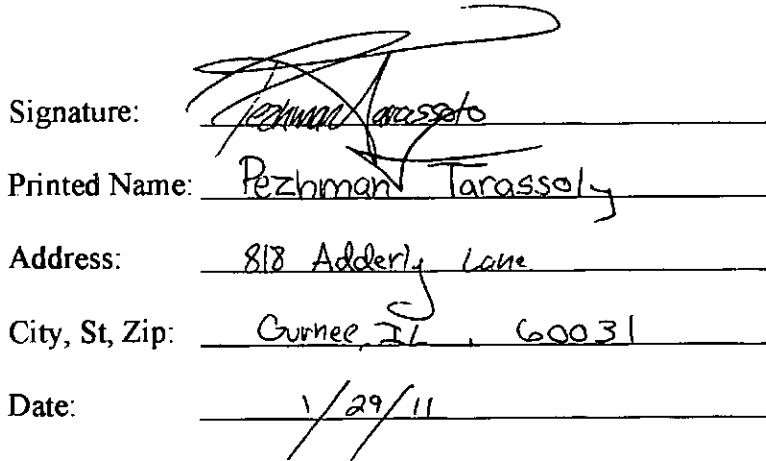 Signature: Pezhman Tarassoly
Printed Name: Pezhman Tarassoly
Address: 818 Adderly Lane
City, St, Zip: Gurnee, IL, 60031
Date: 1/29/11